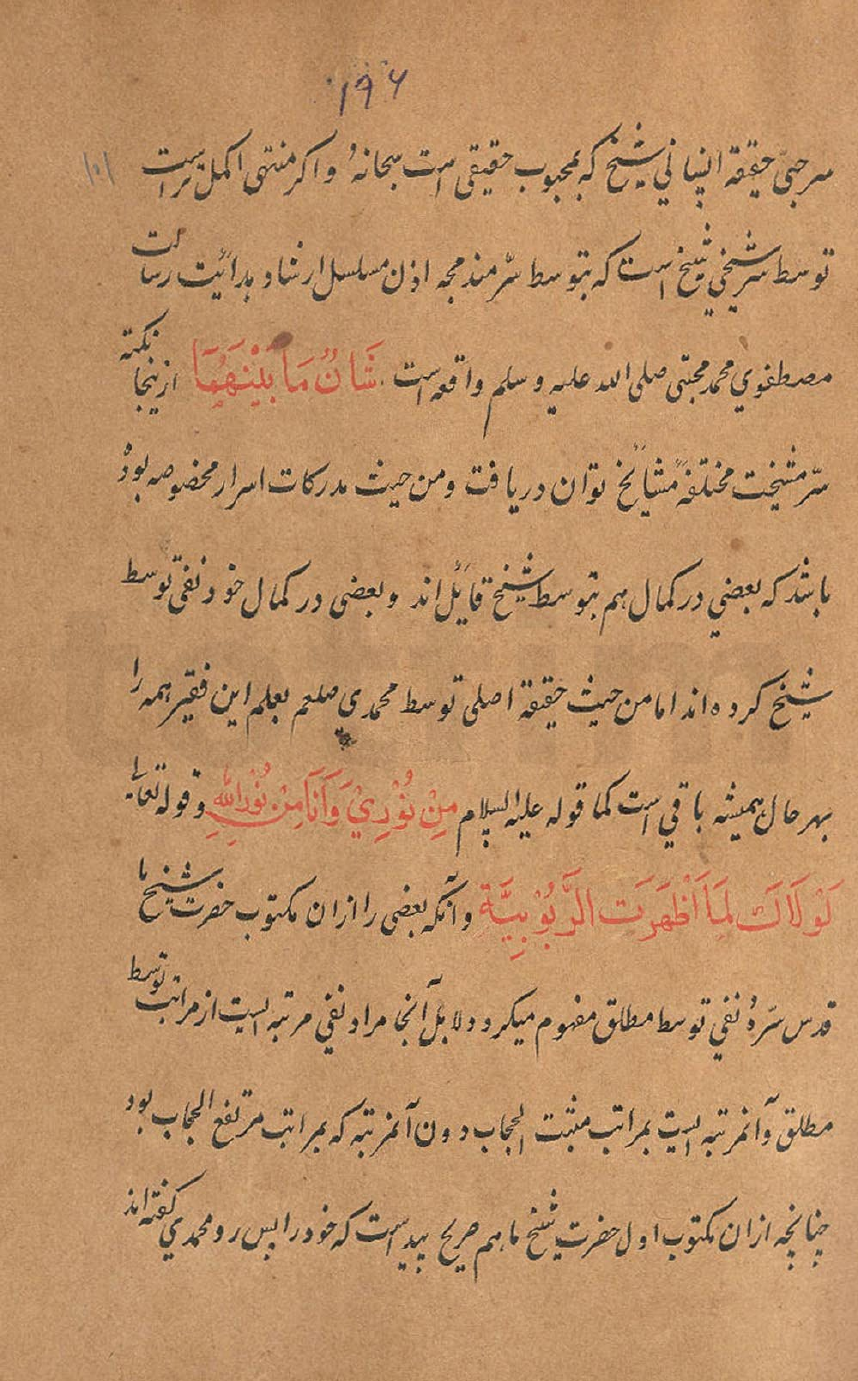 ۱۹۶
۱۰۱
سرحبیّ حقیقة انسانی شیخ که محبوب حقیقی است سبحانهٗ واکر منتهی اکمل تر است
توسط سرّ شیخی شیخ است که بتوسط سرّ مندمجه اذن مسلسل ارشاد و هدائیت رسالت
مصطفوي محمد مجتبی صلی الله علیه وسلم واقعه است شَانٌ مَا بَیْنَهُمَا ازینجا نکته
سرّ مشیخت مختلفهٔ مشائخ توان دریافت ومن حیث مدرکات اسرار مخصوصه بودهٔ
باشد که بعضي در کمال هم بتوسط شیخ قائل اند وبعضی در کمال خود نفی توسط
شیخ کرده اند اما من حیث حقیقة اصلی توسط محمدی صلعم بعلم این فقیر همه را
بهر حال همیشه باقي است کما قوله علیه السلام مِنْ نُوْرِيْ وَاَنَا مِنْ نُوْرِ اللهِ وقوله تعالی
لَوْلَاكَ لَمَا اَظْهَرَت الرَّبُوْبِیَّةِ وآنکه بعضی را ازان مکتوب حضرت شیخ ما
قدس سرّهٗ نفي توسط مطلق مفهوم میکرود لا بل آنجا مراد نفي مرتبه الیست از مراتب توسط
مطلق وآنمرتبه الیست بمراتب مثبت الحجاب دون آنمرتبه که بمراتب مرتفع الحجاب بود
چنانچه ازان مکتوب اول حضرت شیخ ما هم صریح پیداست که خود را پس رو محمدي کفته اند